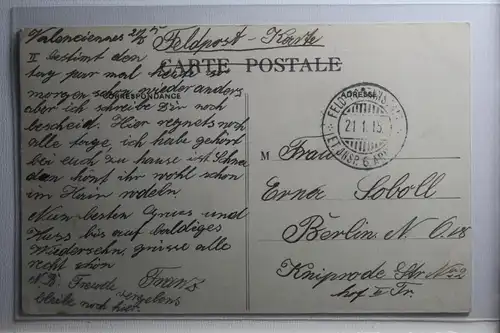 Valenciennes 21/1 15
Feldpost-Karte
CARTE POSTALE
CORRESPONDANCE
ADRESSE
bestimt den
tag paar mal
morgen schon wieder anders
aber ich schreibe Dir noch
bescheid. Hier regnets noch
alle tage, ich habe gehört
bei euch zu hause ist Schnee
dan könt ihr wohl schon
im Hain rodeln
Nun besten Gruss und
Kuss bis auf baldiges
Wiedersehn, grüsse alle
recht schön
Franz
N.B. Freude vergebens
bleibe noch hier.
21.1.15.
M Frau
Erna Soboll
Berlin N. O. 18
Kniprode Str. No 2
hof II Tr.